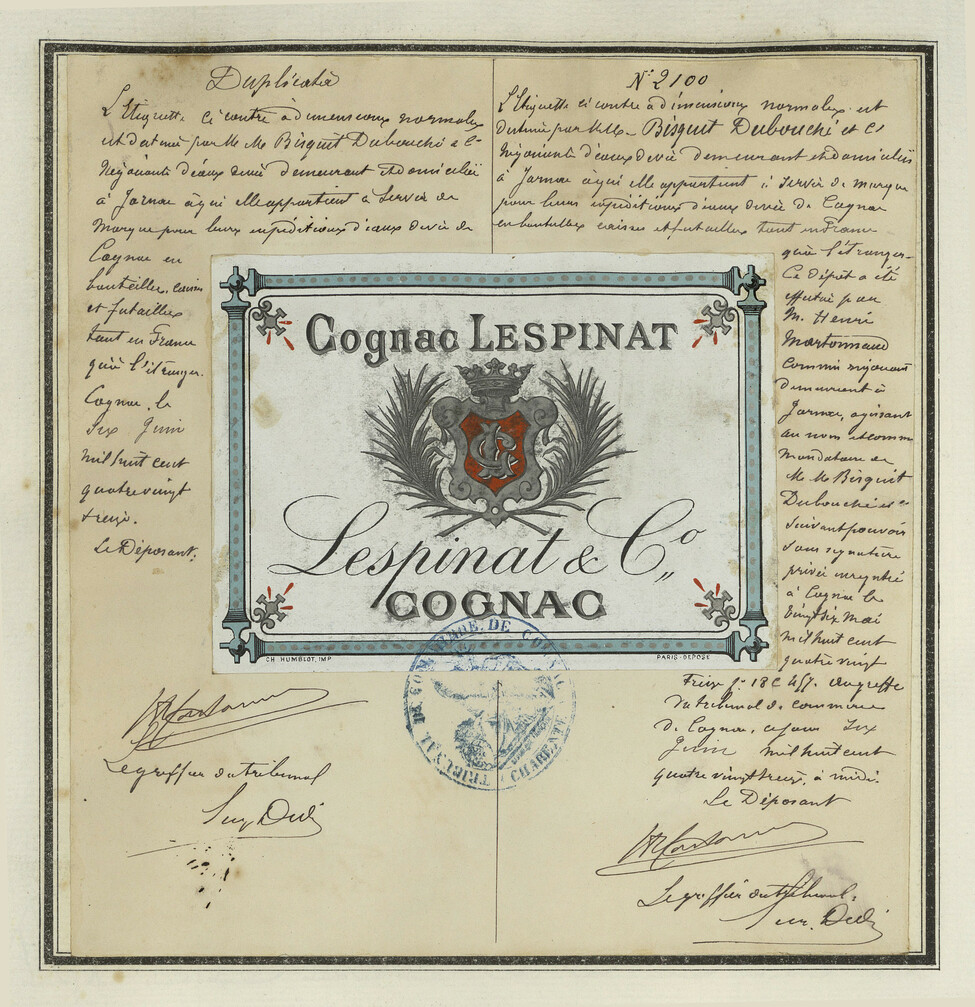 Duplicata
L'Etiquette ci contre à dimensions normales
est destinée par M. M. Bisquit Dubouché & Cie
Négociants d'eaux de vie demeurant et domiciliés
à Jarnac à qui elle appartient à servir de
Marque pour leurs expéditions d'eaux de vie de
Cognac en
bouteilles, caisses
et futailles
tant en France
qu'à l'étranger.
Cognac, le
Six Juin
mil huit cent
quatre vingt
treize.
Le Déposant.
Le greffier du tribunal
N° 2100
L'Etiquette ci contre à dimensions normales est
destinée par M. M. Bisquit Dubouché et Cie
Négociants d'eaux de vie demeurant et domiciliés
à Jarnac à qui elle appartient à servir de marque
pour leurs expéditions d'eaux de vie de Cognac
en bouteilles caisses et futailles tant en France
qu'à l'étranger.
Ce dépôt a été
effectué par
M. Henri
Martonnaud
commis négociant
demeurant à
Jarnac, agissant
au nom et comme
mandataire de
M. M. Bisquit
Dubouché et Cie
suivant pouvoir
sous signature
privée enregistré
à Cognac le
vingt six mai
mil huit cent
quatre vingt
treize fo 18 C 457. au greffe
du tribunal de commerce
de Cognac, ce jour Six
Juin mil huit cent
quatre vingt treize, à midi.
Le Déposant
Le greffier du tribunal.
Cognac LESPINAT
Lespinat & Co
COGNAC
CH. HUMBLOT, IMP
PARIS-DEPOSE
TRIBUNAL DE COMMERCE DE COGNAC
CHARENTE